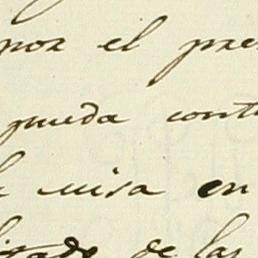 por el pre
pueda cont
misa en
de las